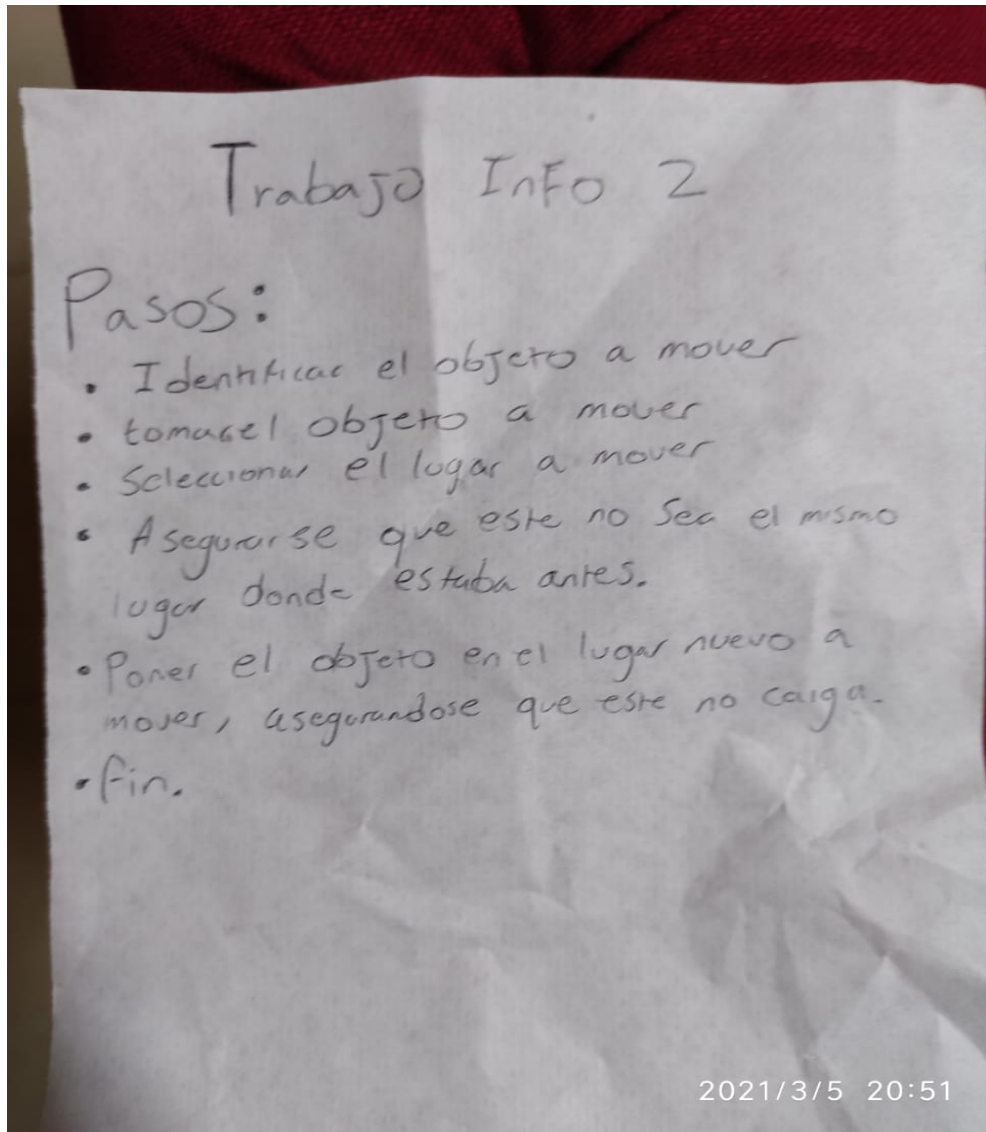 Trabajo Info 2
Pasos:
• Identificar el objeto a mover
• tomar el objeto a mover
• Seleccionar el lugar a mover
• Asegurarse que este no sea el mismo
lugar donde estaba antes.
• Poner el objeto en el lugar nuevo a
mover, asegurandose que este no caiga.
• fin.
2021/3/5 20:51